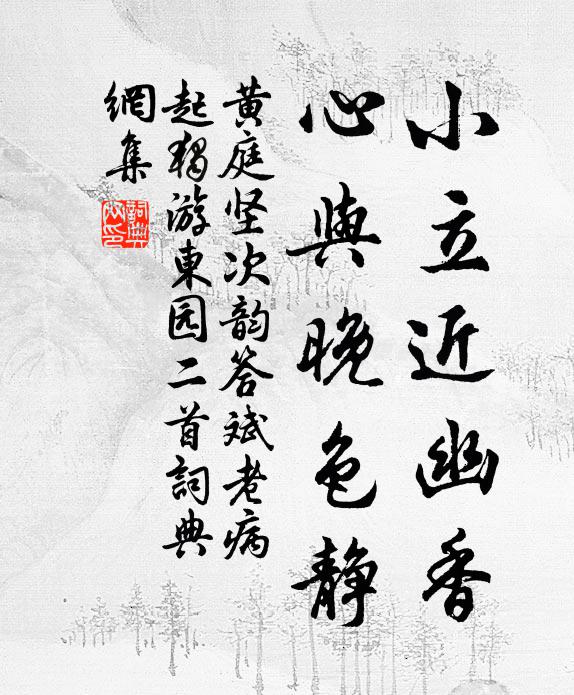 小立近幽香
心與晚色靜
黄庭坚次韵答斌老病
起獨游東园二首詞典
網集